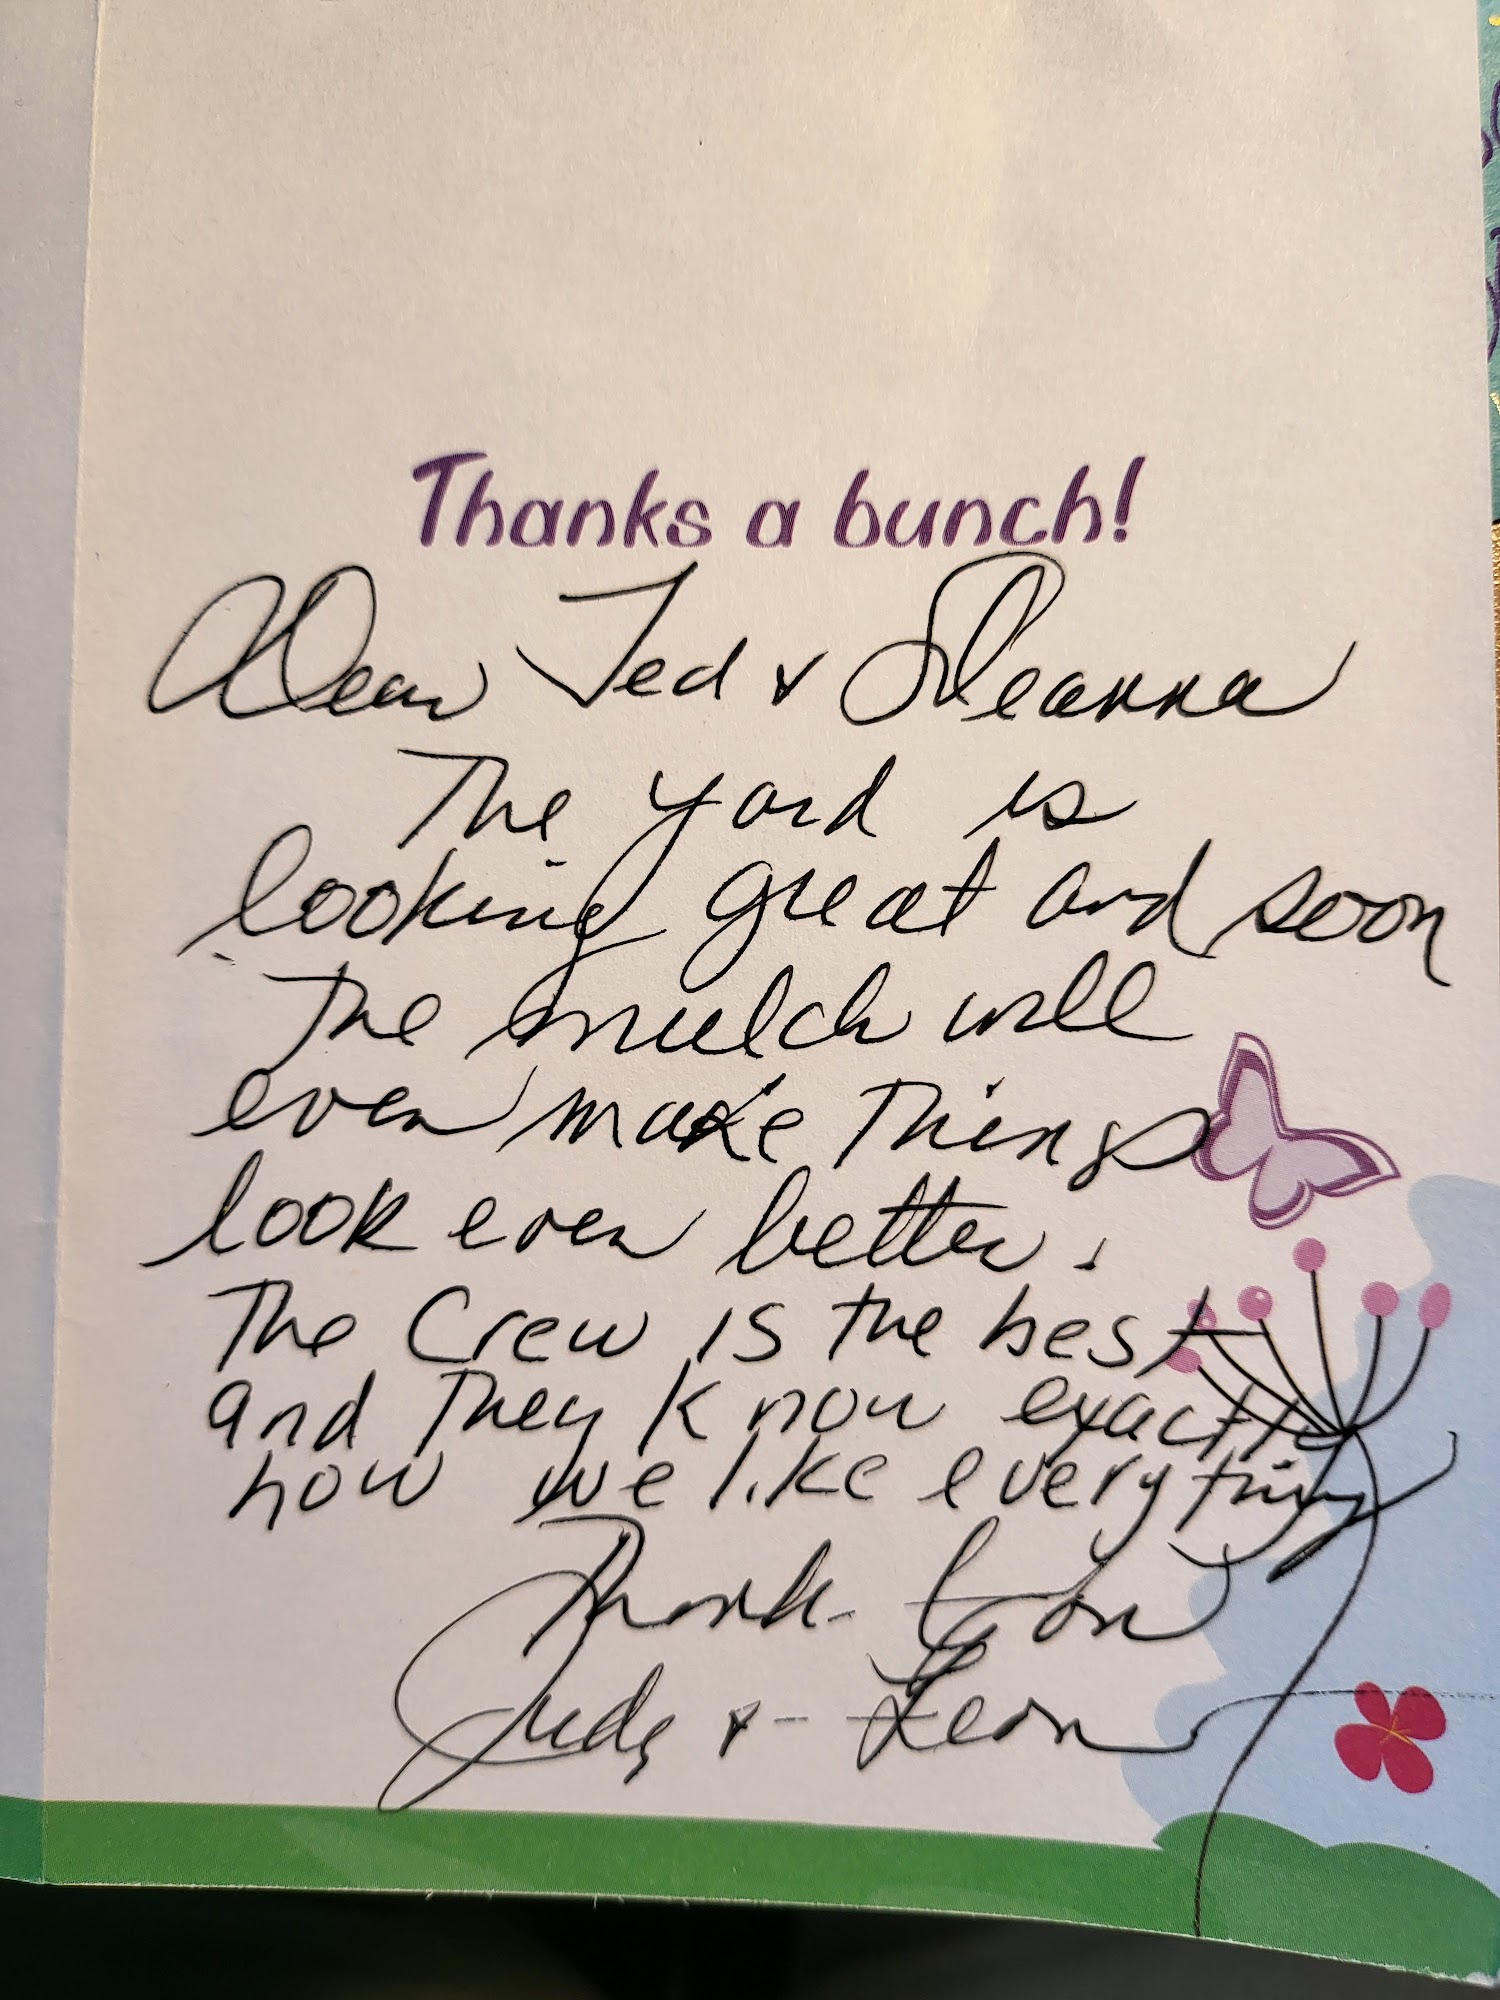 Thanks a bunch!
Dear Ted & Deanna
The yard is
looking great and soon
the mulch will
even make things
look even better.
The Crew is the best
and they know exactly
how we like everything
Thank You
Judy & Leon